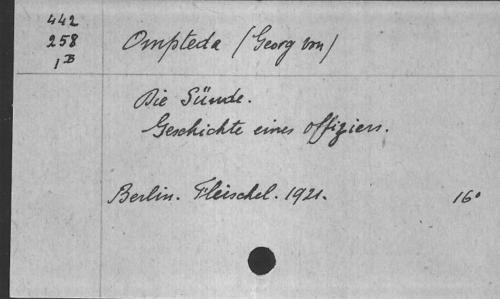 442
258
1B
Ompteda (Georg von)
Die Sünde.
Geschichte eines Offiziers.
Berlin. Fleischel. 1921.
16°